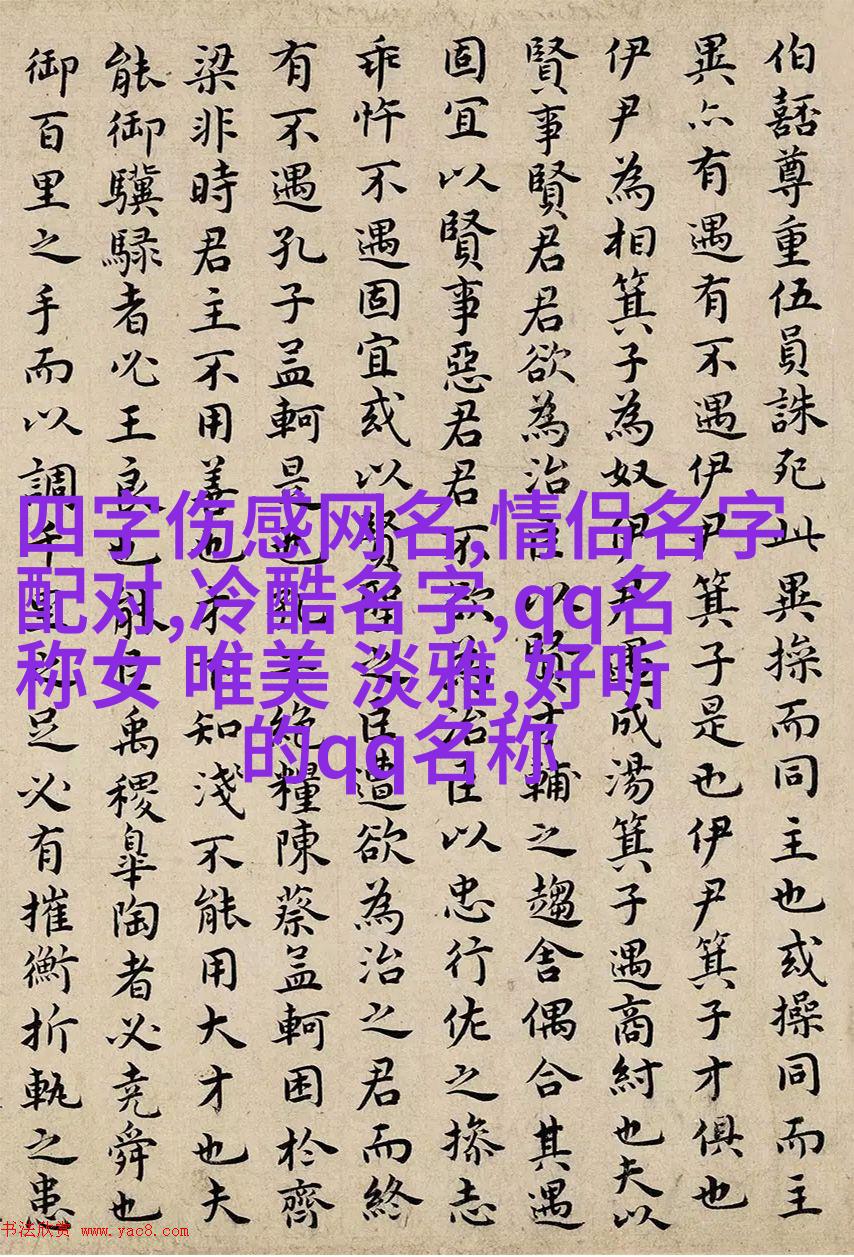 伯嚭尊重伍員誅死此異操而同主也或操同而主
異亦有遇有不遇伊尹箕子是也伊尹箕子才俱也
伊尹為相箕子為奴伊尹遇成湯箕子遇商紂也夫以
賢事賢君君欲為治臣以賢才輔之趨舍偶合其遇
固宜以賢事惡君君不欲為治臣以忠行佐之操志
乖忤不遇固宜或以賢聖之臣遭欲為治之君而終
有不遇孔子孟軻是也孔子絕糧陳蔡孟軻困於齊
梁非時君主不用善也才下知淺不能用大才也夫
能御驥騄者必王良也能臣禹稷皋陶者必堯舜也
御百里之手而以調千里之足必有摧衡折軛之患
四字伤感网名,情侣名字
配对,冷酷名字,qq名
称女 唯美 淡雅,好听
的qq名称
书法欣赏 www.yac8.com